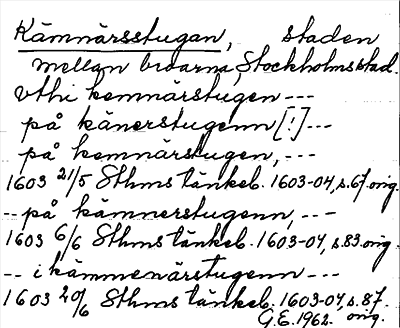 Kämnärsstugan, staden
mellan broarna, Stockholms stad.
vthi kemnärstugen ---
på känerstugenn [!] ---
på kemnärstugen, ---
1603 21/5 Sthms tänkeb. 1603-04, s. 67. orig.
-- på kämnerstugenn, ---
1603 6/6 Sthms tänkeb. 1603-04, s. 83. orig.
-- i kämmenärstugenn ---
1603 20/6 Sthms tänkeb. 1603-04, s. 87. orig.
G.E. 1962.